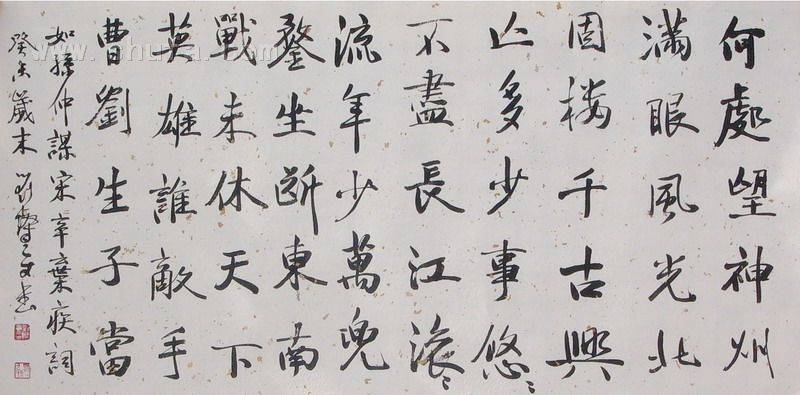 何處望神州
滿眼風光北
固楼千古興
亡多少事悠〻
不盡長江滾〻
流年少萬兜
鍪坐斷東南
戰未休天下
英雄誰敵手
曹劉生子當
如孫仲謀宋辛棄疾詞
癸未歲末